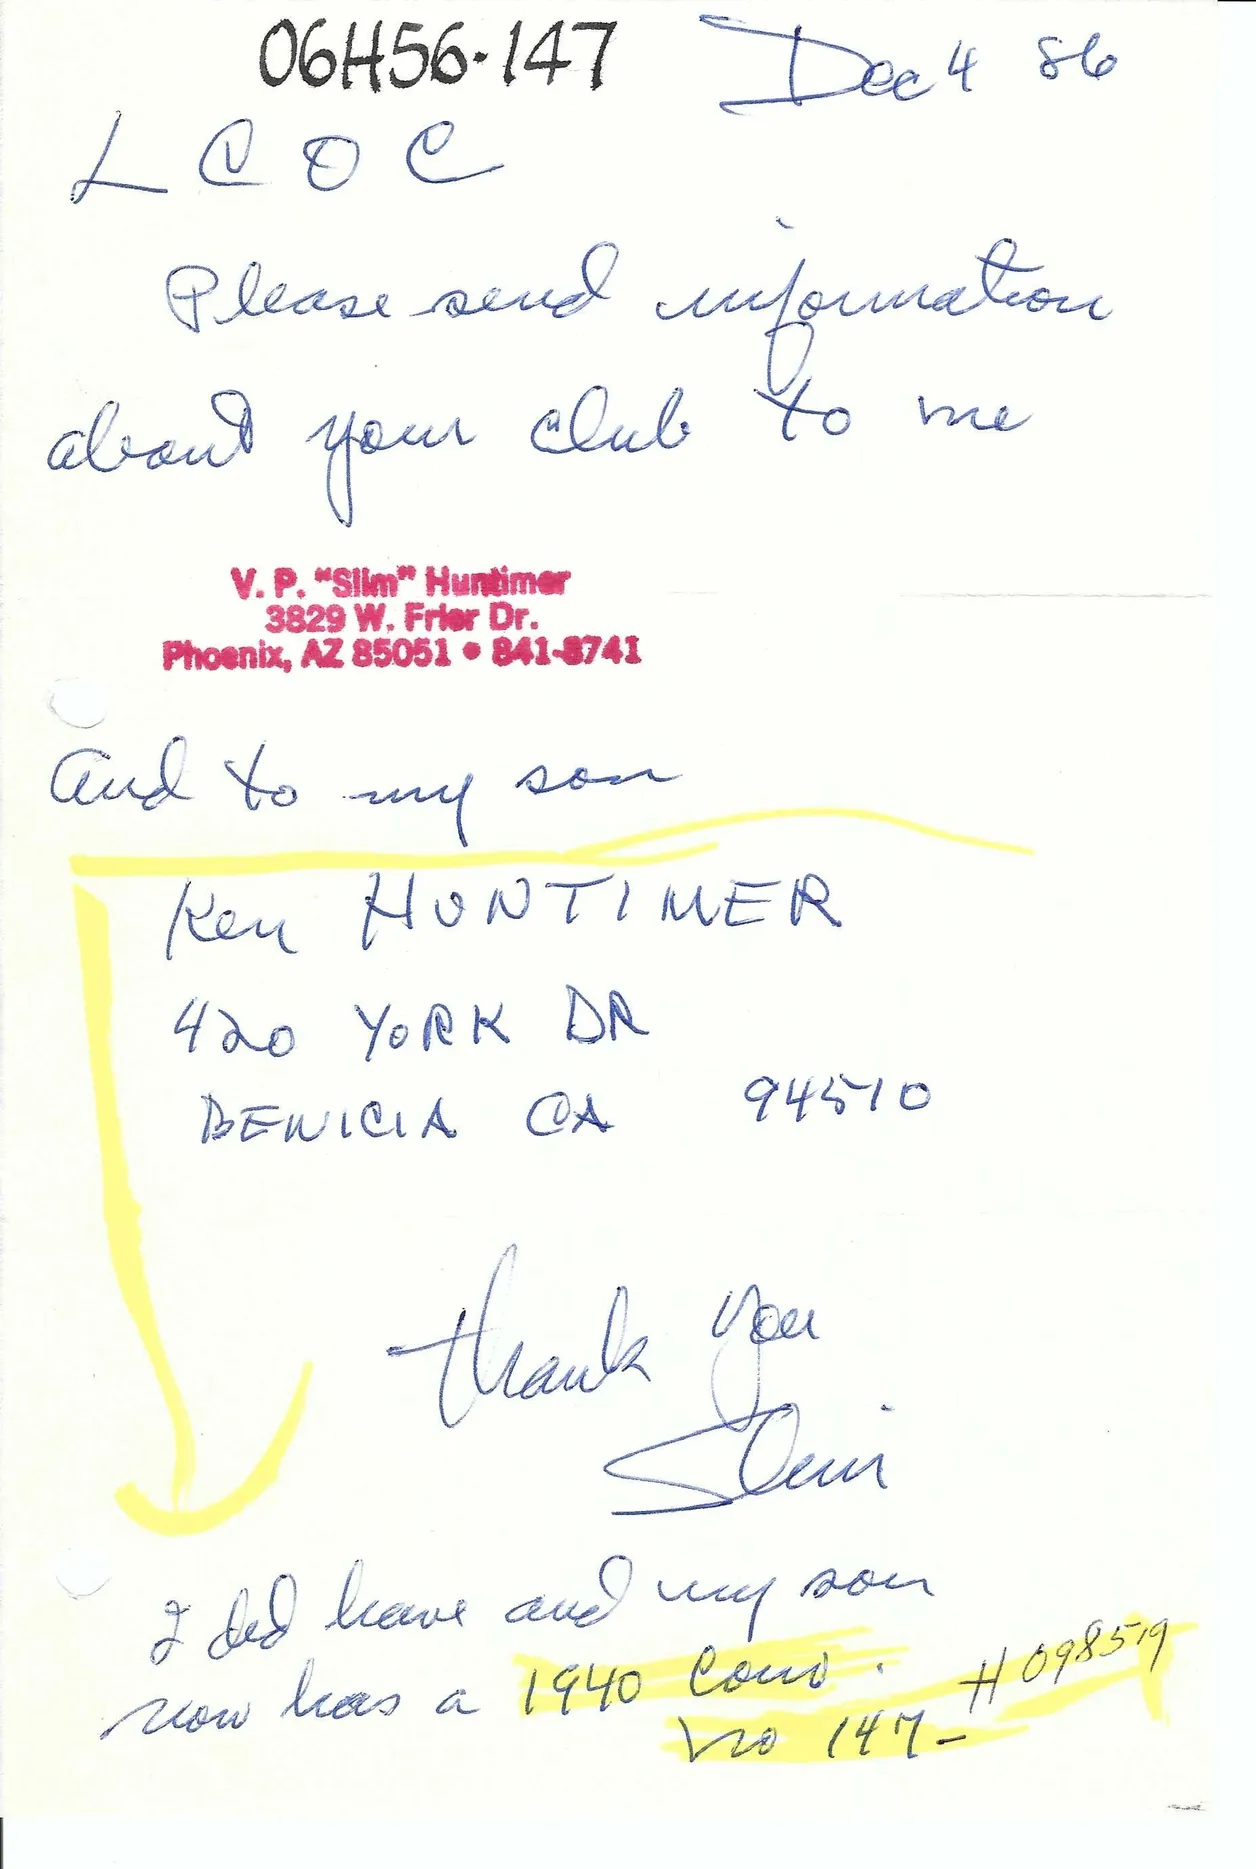 06H56-147
Dec 4 86
L C O C
Please send information
about your club to me
V. P. "Slim" Huntimer
3829 W. Frier Dr.
Phoenix, AZ 85051 • 841-8741
And to my son
Ken HUNTIMER
420 YORK DR
BENICIA CA 94510
Thank you
Slim
I did have and my son
now has a 1940 Conv.
No 147- H098519